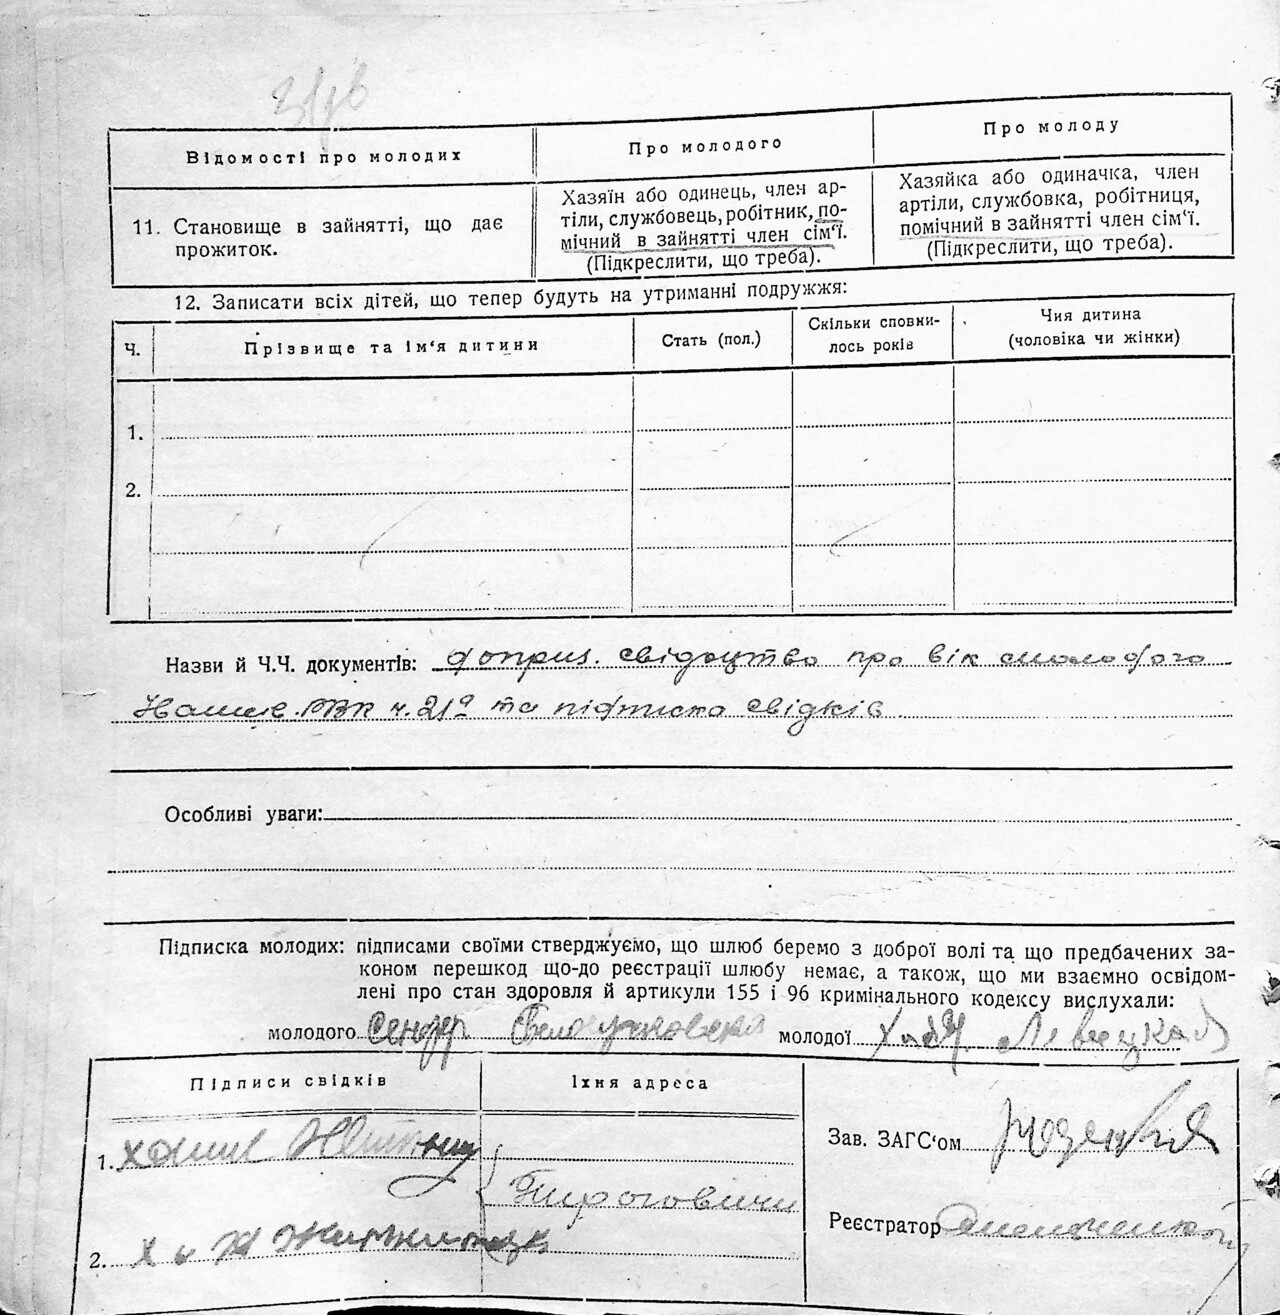 Відомості про молодих
Про молодого
Про молоду
11. Становище в зайнятті, що дає
прожиток.
Хазяїн або одинець, член ар-
тіли, службовець, робітник, по-
мічний в зайнятті член сім‘ї.
(Підкреслити, що треба).
Хазяйка або одиначка, член
артіли, службовка, робітниця,
помічний в зайнятті член сім‘ї.
(Підкреслити, що треба).
12. Записати всіх дітей, що тепер будуть на утриманні подружжя:
Ч.
Прізвище та ім‘я дитини
Стать (пол.)
Скільки сповни-
лось років
Чия дитина
(чоловіка чи жінки)
1.
2.
Назви й Ч.Ч. документів: свідоцтво про вік молодого
ч. 219 та підписка свідків
Особливі уваги:
Підписка молодих: підписами своїми стверджуємо, що шлюб беремо з доброї волі та що предбачених за-
коном перешкод що-до реєстрації шлюбу немає, а також, що ми взаємно освідом-
лені про стан здоровля й артикули 155 і 96 кримінального кодексу вислухали:
молодого Сендер молодої Левицкая
Підписи свідків
Їхня адреса
1.
Пироговичи
2.
Зав. ЗАГС‘ом
Реєстратор